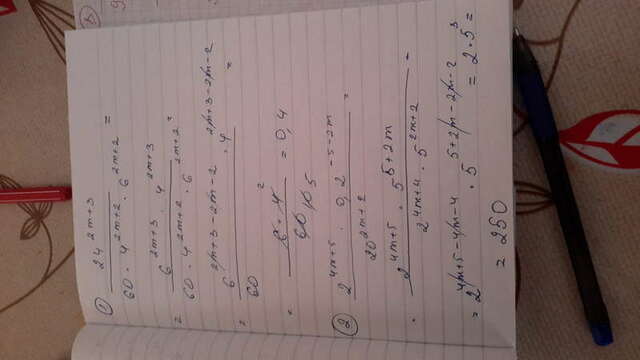 ① 24^(2m+3) / (60 · 4^(2m+2) · 6^(2m+2)) =
= 6^(2m+3) · 4^(2m+3) / (60 · 4^(2m+2) · 6^(2m+2)) =
= 6^(2m+3-2m-2) · 4^(2m+3-2m-2) / 60 =
= 6 · 4 / 60 = 0,4
② 2^(4m+5) · 0,2^(-5-2m) / 20^(2m+2) =
· 2^(4m+5) · 5^(5+2m) / (2^(4m+4) · 5^(2m+2)) =
= 2^(4m+5-4m-4) · 5^(5+2m-2m-2) = 2 · 5^3 =
= 250